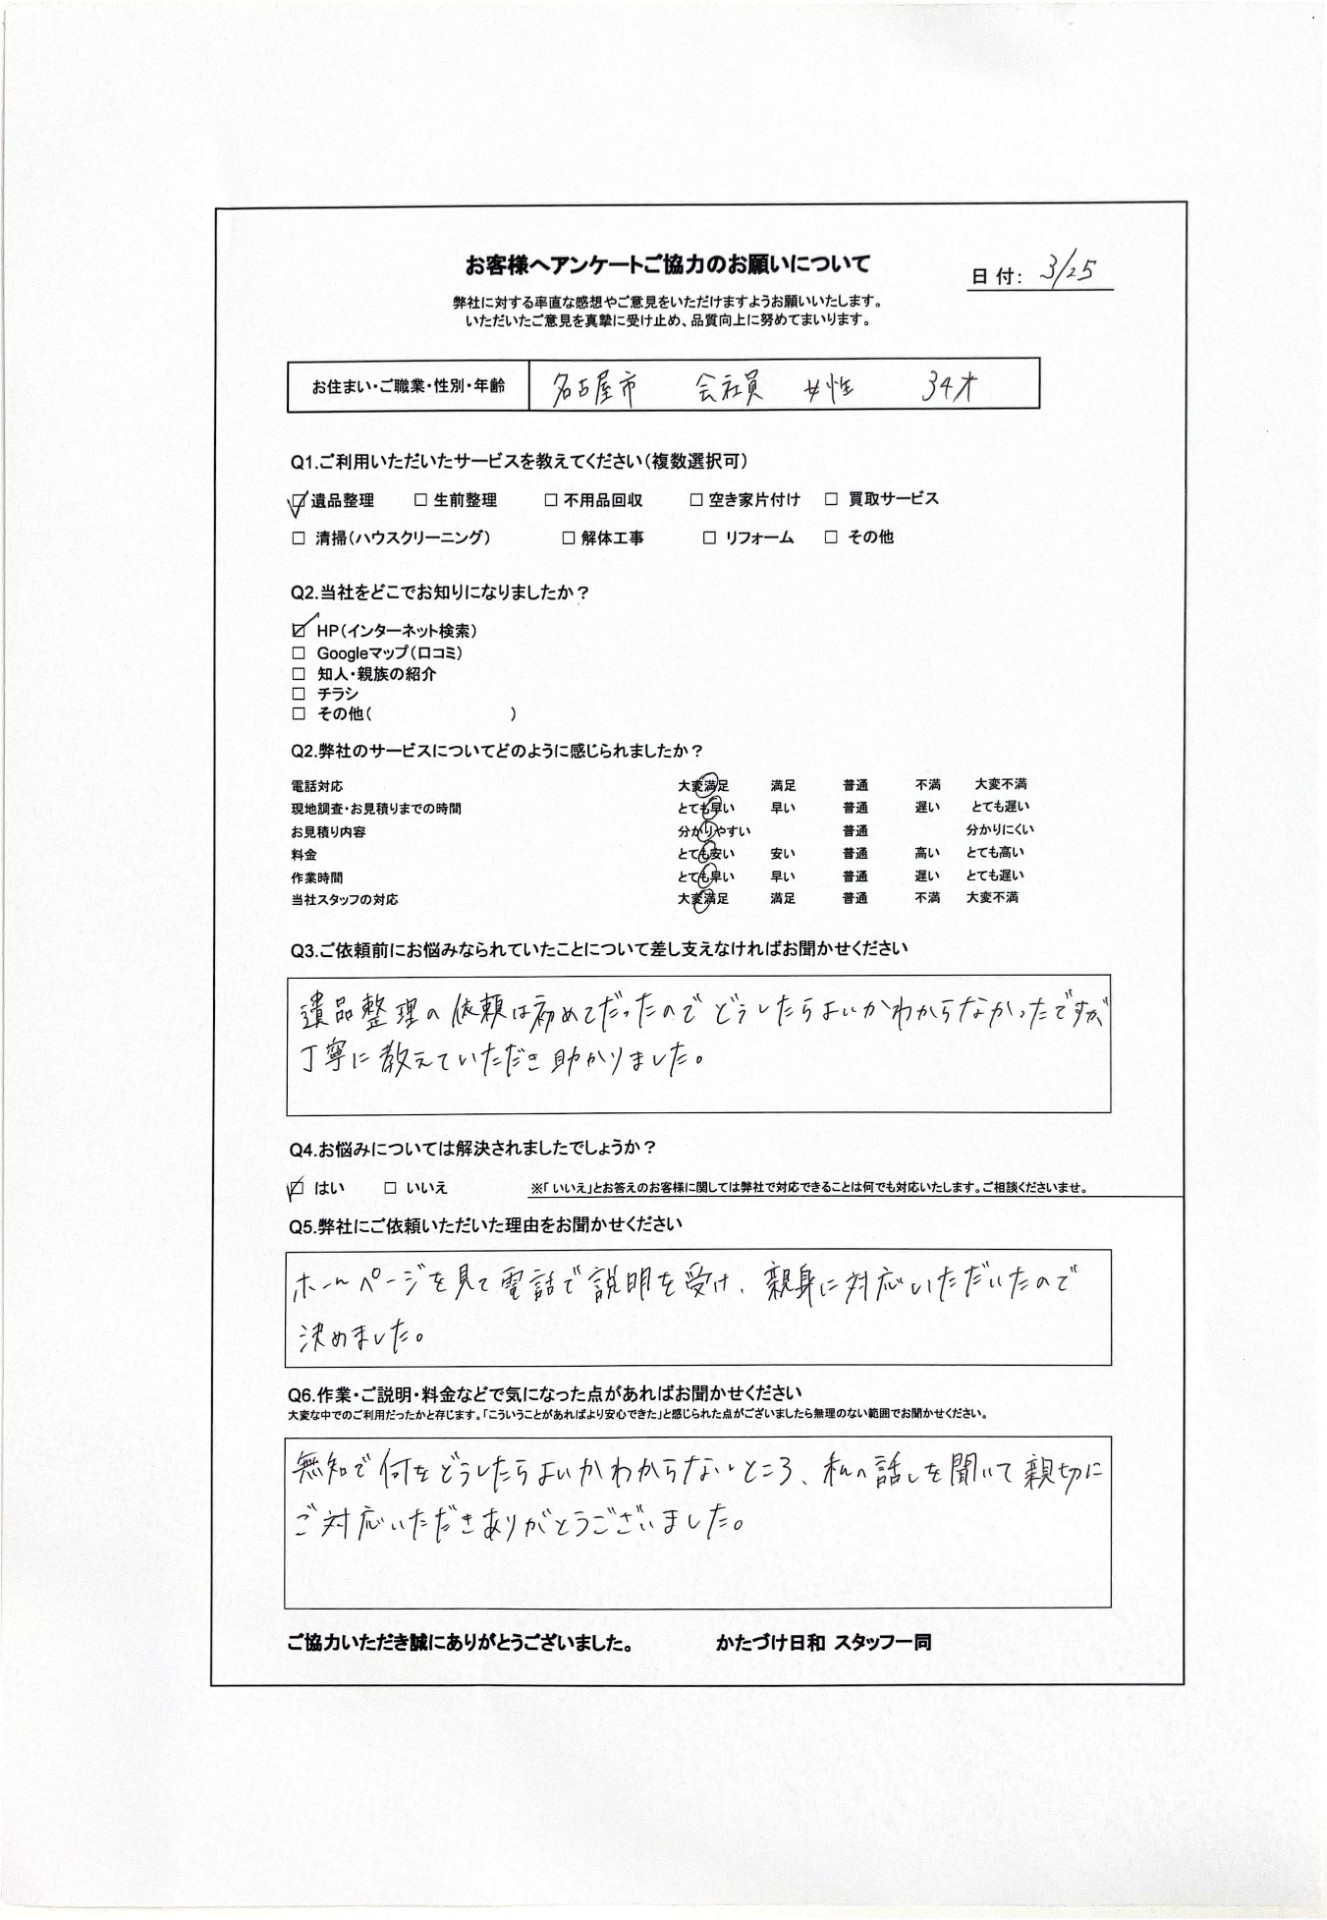 お客様へアンケートご協力のお願いについて
日付: 3/25
弊社に対する率直な感想やご意見をいただけますようお願いいたします。
いただいたご意見を真摯に受け止め、品質向上に努めてまいります。
お住まい・ご職業・性別・年齢 名古屋市 会社員 女性 34才
Q1.ご利用いただいたサービスを教えてください(複数選択可)
☑ 遺品整理 □ 生前整理 □ 不用品回収 □ 空き家片付け □ 買取サービス
□ 清掃(ハウスクリーニング) □ 解体工事 □ リフォーム □ その他
Q2.当社をどこでお知りになりましたか?
☑ HP(インターネット検索)
□ Googleマップ(口コミ)
□ 知人・親族の紹介
□ チラシ
□ その他( )
Q2.弊社のサービスについてどのように感じられましたか?
電話対応 大変満足 満足 普通 不満 大変不満
現地調査・お見積りまでの時間 とても早い 早い 普通 遅い とても遅い
お見積り内容 分かりやすい 普通 分かりにくい
料金 とても安い 安い 普通 高い とても高い
作業時間 とても早い 早い 普通 遅い とても遅い
当社スタッフの対応 大変満足 満足 普通 不満 大変不満
Q3.ご依頼前にお悩みなられていたことについて差し支えなければお聞かせください
遺品整理の依頼は初めてだったのでどうしたらよいかわからなかったですが
丁寧に教えていただき助かりました。
Q4.お悩みについては解決されましたでしょうか?
☑ はい □ いいえ ※「いいえ」とお答えのお客様に関しては弊社で対応できることは何でも対応いたします。ご相談くださいませ。
Q5.弊社にご依頼いただいた理由をお聞かせください
ホームページを見て電話で説明を受け、親身に対応いただいたので
決めました。
Q6.作業・ご説明・料金などで気になった点があればお聞かせください
大変な中でのご利用だったかと存じます。「こういうことがあればより安心できた」と感じられた点がございましたら無理のない範囲でお聞かせください。
無知で何をどうしたらよいかわからないところ、私の話しを聞いて親切に
ご対応いただきありがとうございました。
ご協力いただき誠にありがとうございました。 かたづけ日和 スタッフ一同